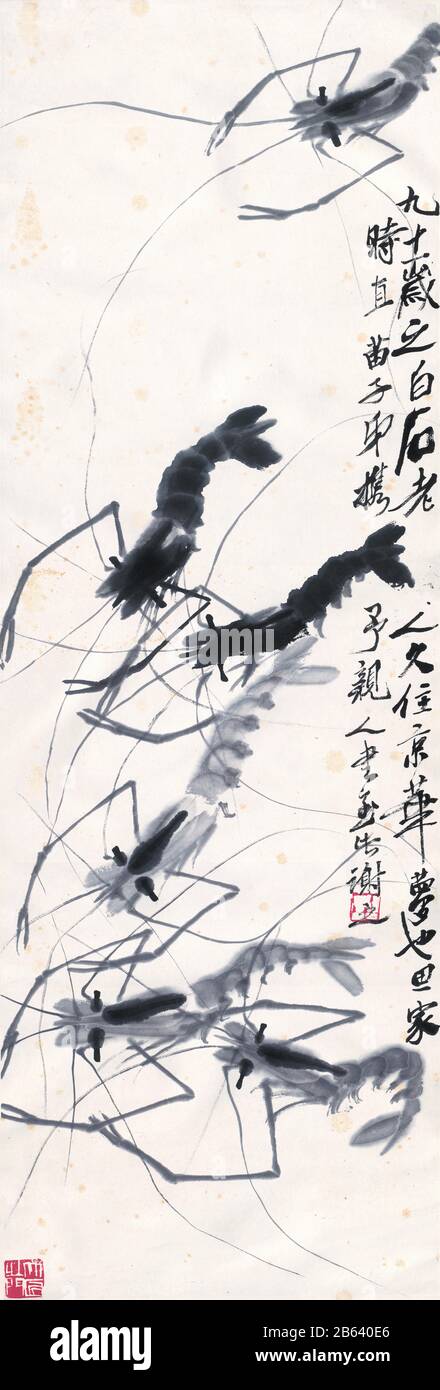 九十歲之白石老人久住京華夢也思家
時直苗子携予親人書至謝
alamy
alamy
Image ID: 2B640E6
www.alamy.com